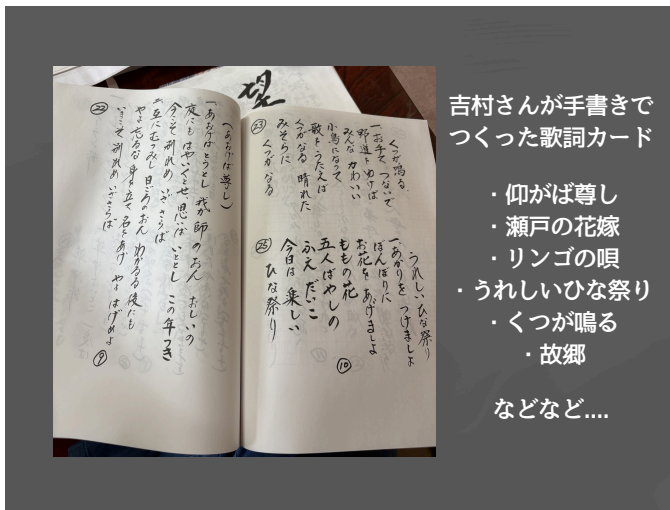 吉村さんが手書きで
つくった歌詞カード
・仰がば尊し
・瀬戸の花嫁
・リンゴの唄
・うれしいひな祭り
・くつが鳴る
・故郷
などなど....
望
㉓
くつが鳴る
一、お手て つないで
野道をゆけば
みんな かわいい
小鳥になって
歌をうたえば
くつがなる 晴れた
みそらに
くつがなる
㉕
うれしいひな祭り
一、あかりを つけましょ
ぼんぼりに
お花を あげましょ
ももの花
五人ばやしの
ふえ だいこ
今日は 楽しい
ひな祭り
⑩
㉒
(あおげば尊し)
一、あおげば とうとし 我が師のおん おしいの
庭にも はやいくとせ 思へば いととし この年つき
今こそ 別れめ いざさらば
二、互にむつみし 日ごろのおん わかるる後にも
やよ 忘るな 身を立て 名をあげ やよ はげめよ
いまこそ 別れめ いざさらば
⑨